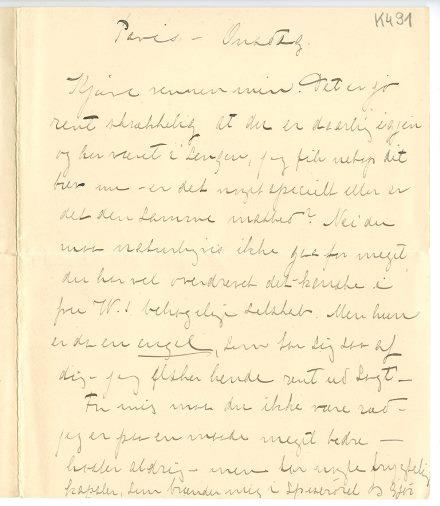 K491
Paris – Onsdag.
Kjære vennen min! Det er jo
rent skrækkelig at du er daarlig igjen
og har været i sengen, jeg fik netop dit
brev nu – er det noget specielt eller er
det den samme mathed? Nei du
maa naturligvis ikke gaa for meget
du har vel overdrevet det – kanske i
fru W.s behagelige selskab. Men hun
er da en engel, som tar sig saa af
dig – jeg elsker hende rent ud sagt –
For mig maa du ikke være ræd –
jeg er paa en maade meget bedre –
hoster aldrig – men har nogle
kapsler, som brænder mig i spiserøret og gjør